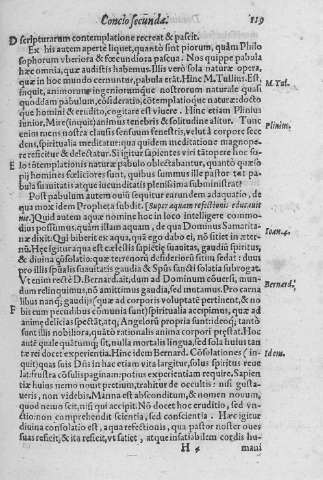 Concio secunda. 119
D scripturarum contemplatione recreat & pascit.
Ex his autem aperte liquet, quantò sint piorum, quàm Philo
sophorum vberiora & fœcundiora pascua. Nos quippe pabula
hæc omnia, quæ auditis habemus. Illis verò sola naturæ opera,
quæ in hoc mundo cernuntur, pabula erãt. Hinc M. Tullius. Est,
M. Tul.
inquit, animorum ingeniorumque nostrorum naturale quasi
quoddam pabulum, cõsideratio, cõtemplatioq́ue naturæ: docto
que homini & erudito, cogitare est viuere. Hinc etiam Plinius
Plinius.
iunior, Mire (inquit) animus tenebris & solitudine alitur. Tunc
enim mens nostra clausis sensuum fenestris, velut à corpore sece
dens, spiritualia meditatur: qua quidem meditatione magnope-
re reficitur & delectatur. Si igitur sapientes viri tãtopere hoc so-
E lo cõtemplationis naturæ pabulo oblectabantur, quantò quæso
pij homines fœliciores sunt, quibus summus ille pastor tot pa-
bula suauitatis atque iucunditatis plenissima subministrat?
Post pabulum autem ouiũ sequitur earundem adaquatio, de
qua mox idem Propheta subdit. [Super aquam refectionis educauit
me.] Quid autem aquæ nomine hoc in loco intelligere commo
dius possumus, quàm istam aquam, de qua Dominus Samarita-
Ioan. 4.
næ dixit. Qui biberit ex aqua, quã ego dabo ei, nõ sitiet in æter-
nũ. Hęc igitur aqua est cœlestis suauitas, gaudiũ spiritus,
& diuina cõsolatio: quæ terrenorũ desideriorũ sitim sedat: dum
pro illis spualis suauitatis gaudia & Spũs sancti solatia subrogat.
Vt enim rectè D. Bernard. ait, dum ad Dominum cõuerti, mun-
Bernard.
dum relinquimus, nõ amittimus gaudia, sed mutamus. Pro carna
libus nanq;, gaudijs (quæ ad corporis voluptatẽ pertinent, & no
F bis cum pecudibus cõmunia sunt) spiritualia accipimus, quæ ad
animę delicias spectãt, atq; Angelorũ propria sunt: ideoq;, tantò
sunt illis nobiliora, quãtò rationalis anima corpori pręstat. Hoc
autẽ quale quãtumq; sit, nulla mortalis lingua, sed sola huius tan
tæ rei docet experientia. Hinc idem Bernard. Cõsolationes (in
Idem.
quit) quas suis Dñs in hac etiam vita largitur, solus spiritus reue
lat: frustra cõsulis paginam: potius experientiam require. Sapien
tiæ huius nemo nouit pretium, trahitur de occultis: nisi gusta-
ueris, non videbis. Manna est absconditum, & nomen nouum,
quod nemo scit, nisi qui accipit. Nõ docet hoc eruditio, sed vn-
ctio: non comprehendit scientia, sed conscientia. Hæc igitur
diuina consolatio est, aqua refectionis, qua pastor noster oues
suas reficit, & ita reficit, vt satiet, atque insatiabilem cordis hu-
H 4 mani